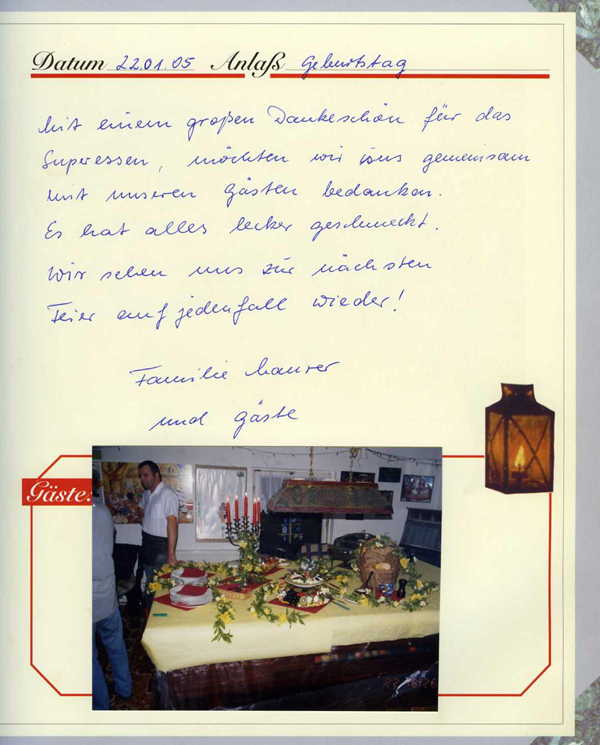 Datum 22.01.05 Anlaß Geburtstag
Mit einem großen Dankeschön für das
Superessen, möchten wir uns gemeinsam
mit unseren Gästen bedanken.
Es hat alles lecker geschmeckt.
Wir sehen uns zur nächsten
Feier auf jedenfall wieder!
Familie
und Gäste
Gäste: